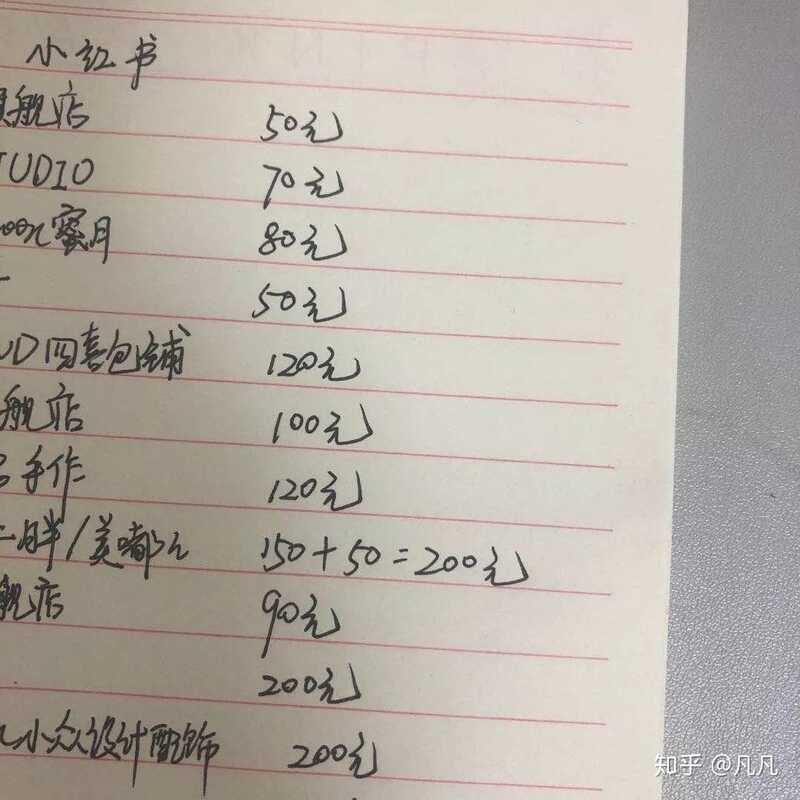 小红书
旗舰店 50元
TUDIO 70元
蜜月 80元
50元
UD四喜包铺 120元
舰店 100元
手作 120元
胖/美嘟儿 150+50=200元
舰店 90元
200元
小众设计配饰 200元
知乎 @凡凡